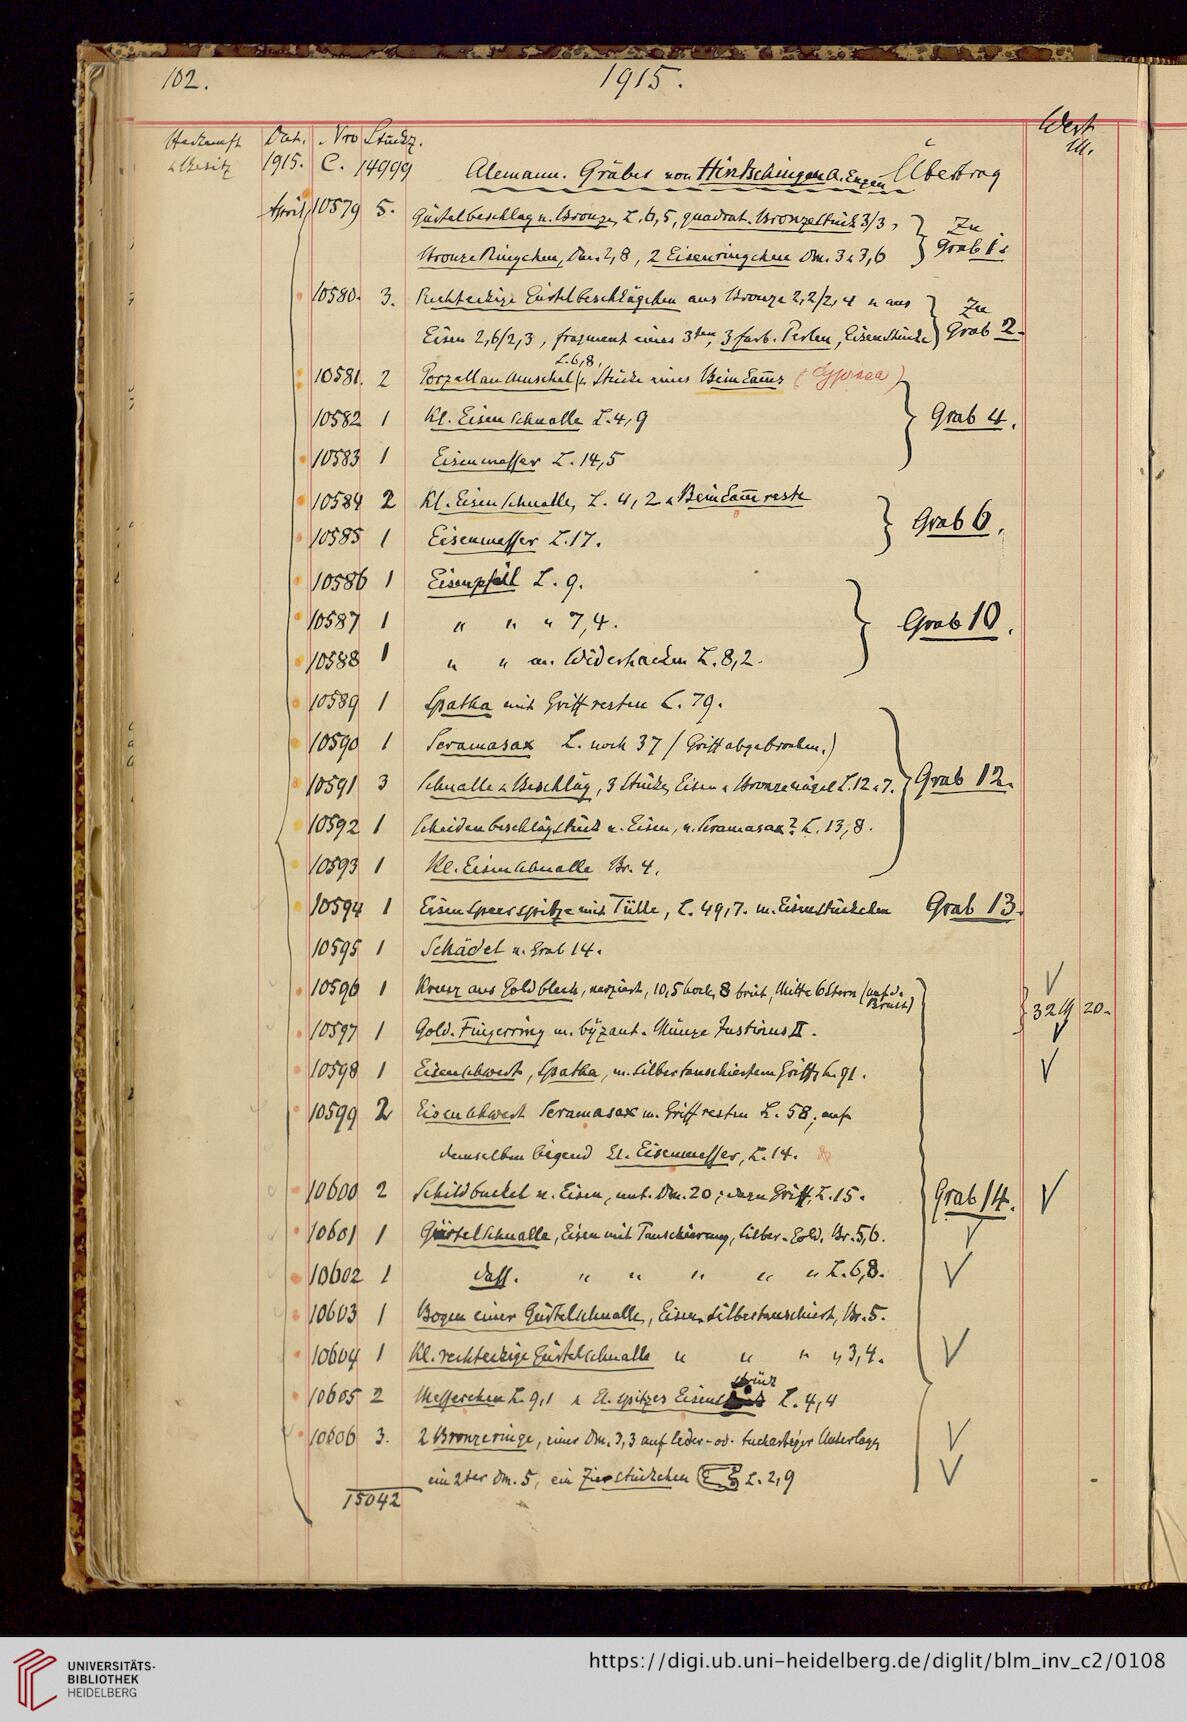 102.
1915.
Herkunft Dat. Nro Stückz. Wert
u. Besitz 1915. C. 14999 Alemann. Gräber von Hintschingen A. Engen Übertrag M.
April 10579 5. Gürtelbeschläg v. Bronze, L. 6,5, quadrat. Bronzestück 3/3, Zu
Bronze Ringchen, Dm. 2,8, 2 Eisenringchen Dm. 3 u 3,6 Grab 1.
10580. 3. Rechteckige Gürtelbeschlägchen aus Bronze 2,2/2,4 u aus Zu
Eisen 2,6/2,3, fragment eines 3ten, 3 farb. Perlen, Eisenstücke Grab 2.
L. 6,8,
10581. 2 Porzellanmuschel u. Stücke eines Beinkam̅s (Cypraea)
10582 1 Kl. Eisenschnalle L. 4,9 Grab 4.
10583 1 Eisenmesser L. 14,5
10584 2 Kl. Eisenschnalle, L. 4,2 u Beinkam̅reste
10585 1 Eisenmesser L. 17. Grab 6.
10586 1 Eisenpfeil L. 9.
10587 1 " " " 7,4. Grab 10.
10588 1 " " m. Widerhacken L. 8,2.
10589 1 Spatha mit Griffresten L. 79.
10590 1 Scramasax L. noch 37 (Griff abgebrochen.)
10591 3 Schnalle u Beschläg, 3 Stücke, Eisen u Bronzenägel L. 12 u 7. Grab 12.
10592 1 Scheidenbeschlägstück v. Eisen, v. Scramasax? L. 13,8.
10593 1 Kl. Eisenschnalle Br. 4.
10594 1 Eisenspeerspitze mit Tülle, L. 49,7. m. Eisenstückchen Grab 13.
10595 1 Schädel v. Grab 14.
10596 1 Kreuz aus Goldblech, verziert, 10,5 hoch, 8 breit, Mitte 6 Stern (auf d. Brust)
32 M 20.
10597 1 Gold. Fingerring m. byzant. Münze Justinus II.
10598 1 Eisenschwert, Spatha, m. silbertauschiertem Griff, L. 91.
10599 2 Eisenschwert Scramasax m. Griffresten L. 58; auf
demselben liegend kl. Eisenmesser, L. 14.
10600 2 Schildbuckel v. Eisen, unt. Dm. 20; dazu Griff, L. 15. Grab 14.
10601 1 Gürtelschnalle, Eisen mit Tauschierung, Silber u. Gold, Br. 5,6.
10602 1 dass. " " " " " L. 6,8.
10603 1 Bogen einer Gürtelschnalle, Eisen silbertauschiert, Br. 5.
10604 1 Kl. rechteckige Gürtelschnalle " " " " 3,4.
10605 2 Messerchen L. 9,1 u kl. spitzes Eisenstück L. 4,4
10606 3. 2 Bronzeringe, einer Dm. 3,3 auf leder- od. tuchartiger Unterlage,
ein 2ter Dm. 5, ein Zierstückchen L. 2,9
15042
UNIVERSITÄTS-
BIBLIOTHEK
HEIDELBERG
https://digi.ub.uni-heidelberg.de/diglit/blm_inv_c2/0108